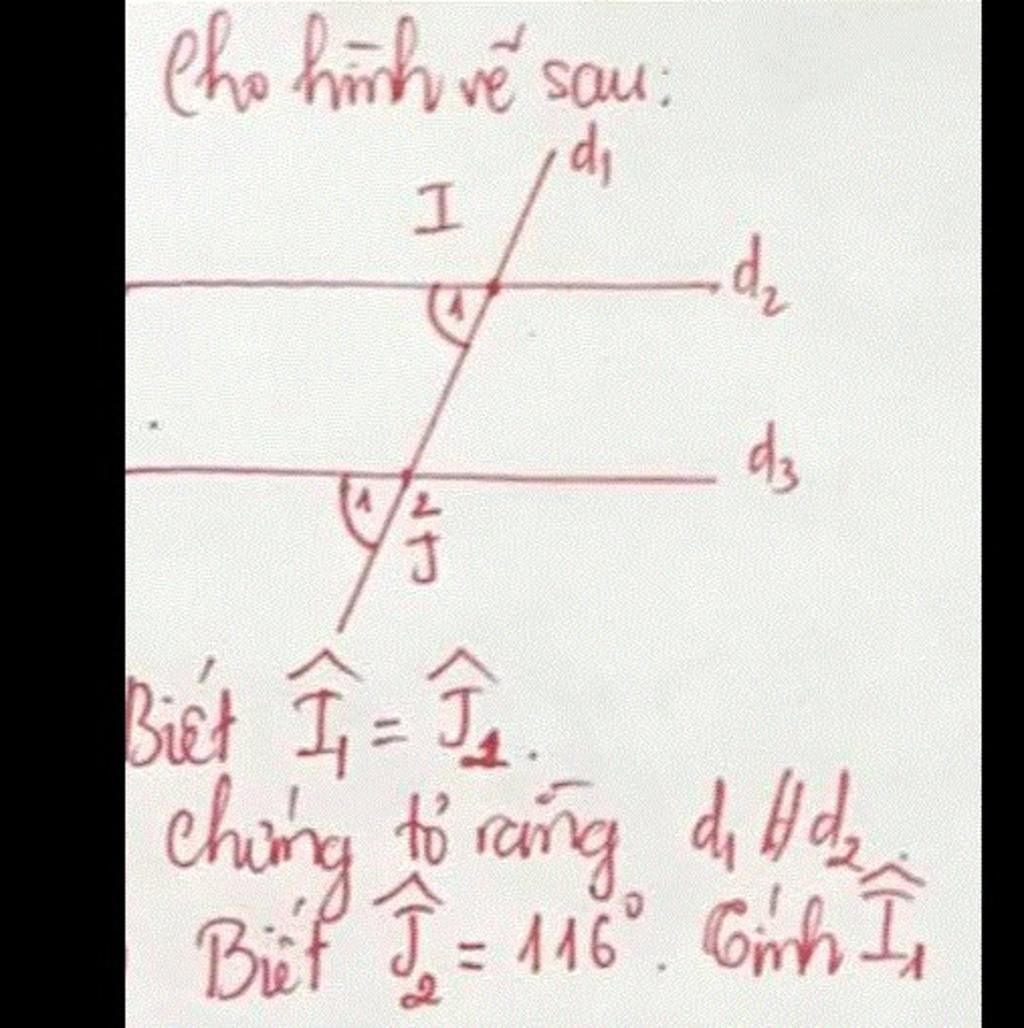 Cho hình vẽ sau:
d₁
I
d₂
1
d₃
1 2
J
Biết Î₁ = Ĵ₁.
chứng tỏ rằng d₁ // d₂.
Biết Ĵ₂ = 116°. Tính Î₁